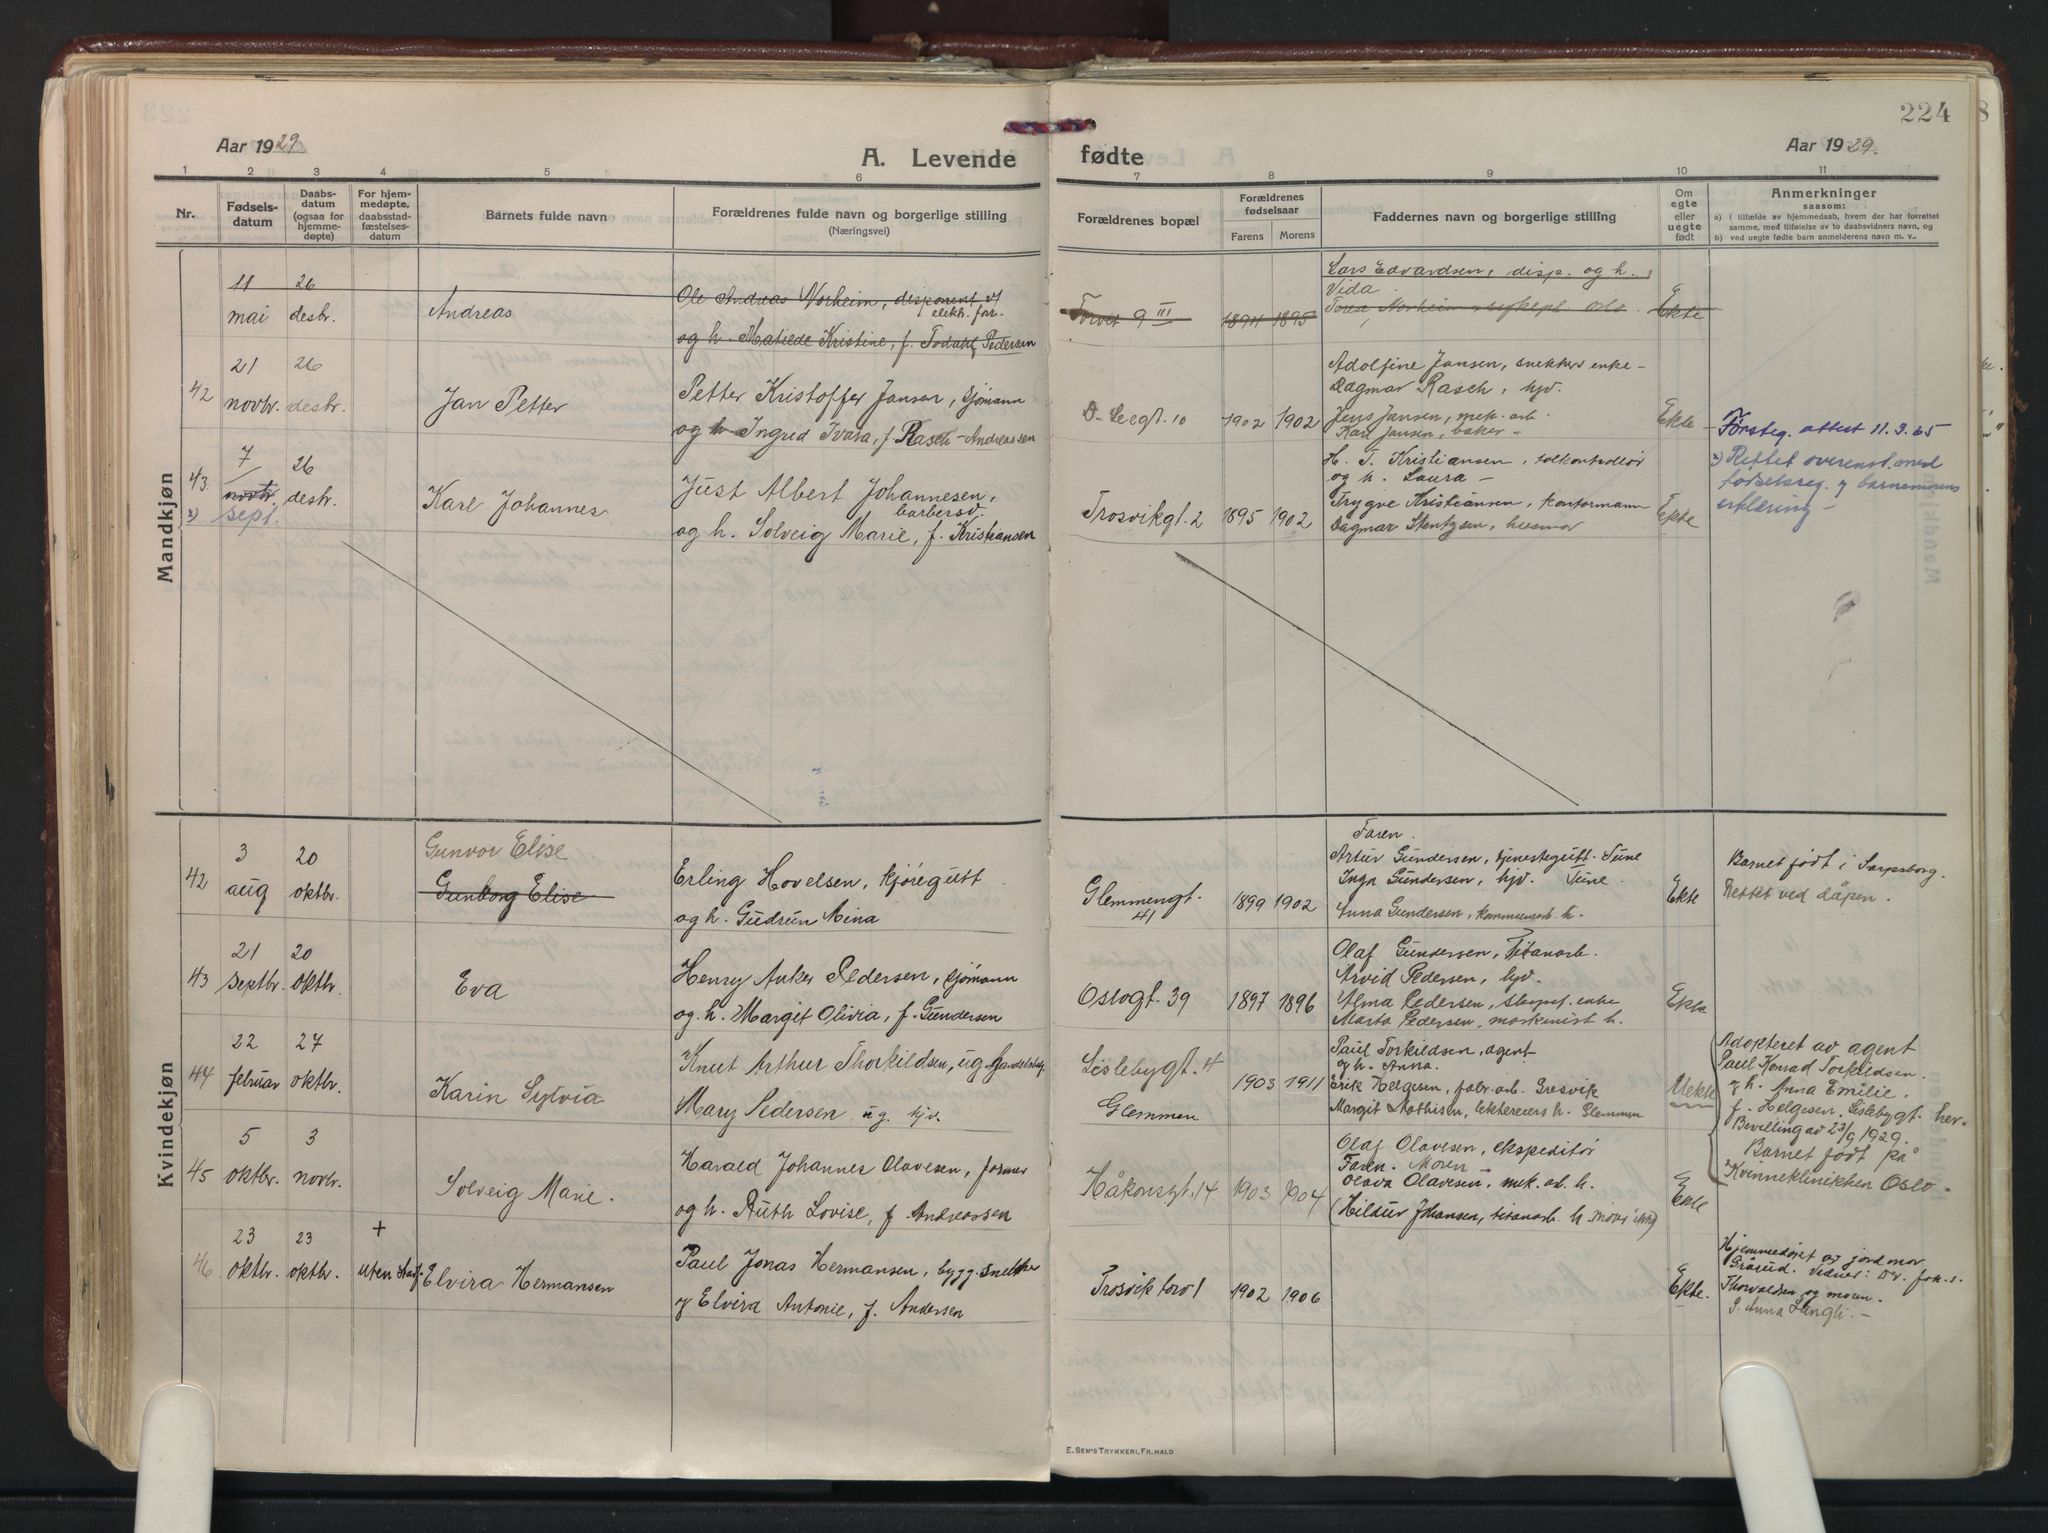 224
Aar 1929
A. Levende
fødte
Aar 1929.
1 2 3 4 5 6 7 8 9 10 11
Nr.
Fødsels-
datum
Daabs-
datum
(ogsaa for
hjemme-
døpte)
For hjem-
medøpte,
daabsstad-
fæstelses-
datum
Barnets fulde navn
Forældrenes fulde navn og borgerlige stilling
(Næringsvei)
Forældrenes bopæl
Forældrenes
fødselsaar
Farens Morens
Faddernes navn og borgerlige stilling
Om
egte
eller
uegte
født
Anmerkninger
saasom:
a) i tilfælde av hjemmedaab, hvem der har forrettet
samme, med tilføielse av to daabsvidners navn, og
b) ved uegte fødte barn anmelderens navn m. v..
Mandkjøn
11 mai
26 desbr.
Andreas
Ole Andreas Norheim, disponent v/
elektr. for.
og h. Matilde Kristine, f. Todahl Pedersen
Torvet 9 III
1894 1895
Lars Edvardsen, disp. og h.
Vida
Norheim, sykepl. Oslo
Ekte
42
21 novbr.
26 desbr.
Jan Petter
Petter Kristoffer Jansen, sjømann
og h. Ingrid Ivara, f. Rasch-Andreassen
O-Leegt. 10
1902 1902
Adolfine Jansen, snekkers enke -
Dagmar Rasch, hjv.
Jens Jansen, mek. arb.
Karl Jansen, baker -
Ekte
Førsteg. attest 11.3.65
43
7 novbr
x) sept.
26 desbr.
Karl Johannes
Just Albert Johannesen,
barbersv.
og h. Solveig Marie, f. Kristiansen
Trosvikgt. 2
1895 1902
H. T. Kristiansen, tolkontrollør
og h. Laura -
Trygve Kristiansen, kontormann
Dagmar Stentzsen, husmor
Ekte
x) Rettet overenst. med
fødselsreg. og barnemorens
erklæring -
Kvindekjøn
42
3 aug
20 oktbr.
Gunvor Elise
Gunborg Elise
Erling Hovelsen, kjøregutt
og h. Gudrun Mina
Glemmengt.
41
1899 1902
Faren.
Artur Gundersen, tjenestegutt. Tune
Inga Gundersen, hjv. Tune
Anna Gundersen, kommunearb. h.
Ekte
Barnet født i Sarpsborg.
Rettet ved dåpen.
43
21 septbr.
20 oktbr.
Eva
Henry Anker Pedersen, sjømann
og h. Margit Olivia, f. Gundersen
Oslogt. 39
1897 1896
Olaf Gundersen, Titanarb.
Arvid Pedersen, hjv.
Alma Pedersen, enke
Marta Pedersen, maskinist h.
Ekte
44
22 februar
27 oktbr.
Karin Sylvia
Knut Arthur Thorkildsen, ug. handelsbtj.
Mary Pedersen ug. hjv.
Lislebygt. 4
Glemmen
1903 1911
Paul Torkildsen, agent
og h. Anna.
Erik Helgesen, fabr. arb. Gresvik
Margit Mathisen, lekterers h. Glemmen
Uekte
Adopteret av agent
Paul Konrad Torkildsen
og h. Anna Emilie,
f. Helgesen, Lislebygt. her.
Bevilling av 23/9 1929.
Barnet født på
Kvinneklinikken Oslo -
45
5 oktbr.
3 novbr.
Solveig Marie.
Harald Johannes Olavesen, former
og h. Ruth Lovise, f. Andreassen
Håkonsgt. 14
1903 1904
Olaf Olavesen, ekspeditør
Faren. Moren
Olava Olavesen, mek. arb. h.
(Hildur Johansen, titanarb. h. møter ikke)
Ekte
46
23 oktbr.
23 oktbr.
+
uten stadf.
Elvira Hermansen
Paul Jonas Hermansen, bygg.snekker
og Elvira Antonie, f. Andersen
Trosvik torv 1
1902 1906
Ekte.
Hjemmedøpt av jordmor
Gråsrud. Vidner: Dr. Joh. s.
Thorvaldsen og moren.
S. Anna Fengli. -
E. Sem's Trykkeri, Fr.hald